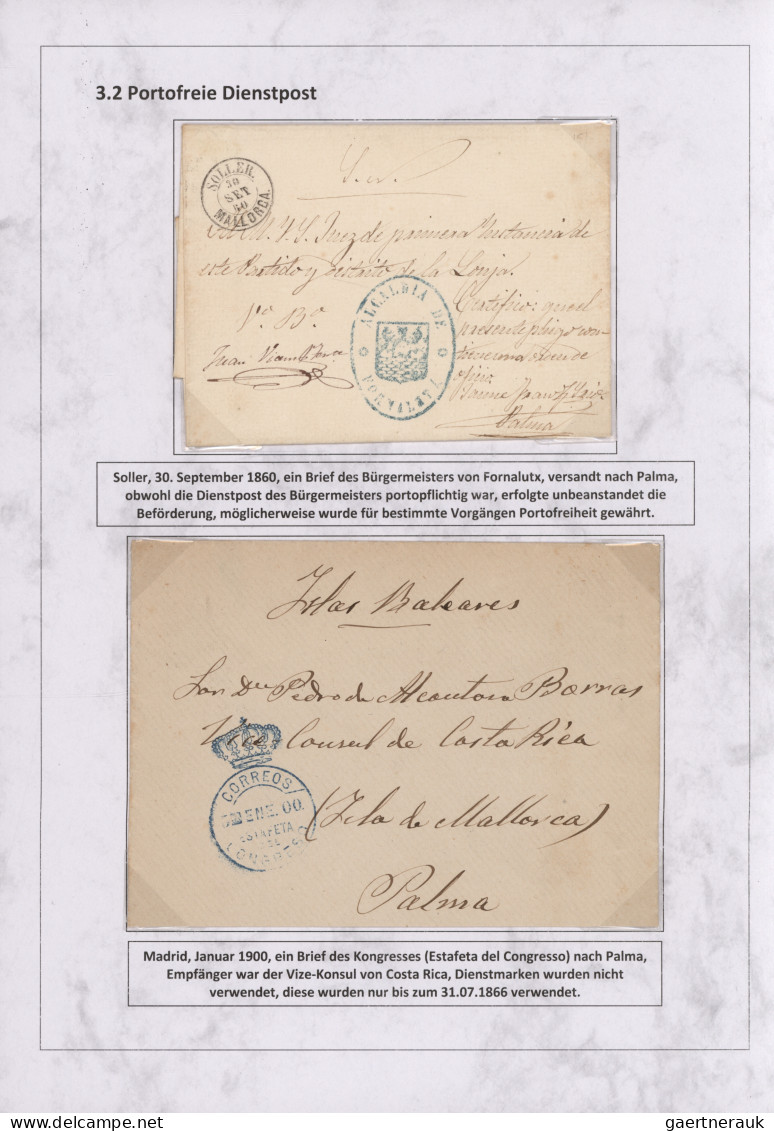 3.2 Portofreie Dienstpost
S. N.
SOLLER.
30
SET
60
MALLORCA.
Al M. Y. S. Juez de primera Instancia de
este Partido y distrito de la Lonja.
Vo. Bo.
ALCALDIA DE
FORNALUTX
Certifico: que el
presente pliego con-
de
oficio
Palma
Soller, 30. September 1860, ein Brief des Bürgermeisters von Fornalutx, versandt nach Palma,
obwohl die Dienstpost des Bürgermeisters portopflichtig war, erfolgte unbeanstandet die
Beförderung, möglicherweise wurde für bestimmte Vorgängen Portofreiheit gewährt.
Islas Baleares
Sor Dn Pedro de Alcantara Borras
Vice-Consul de Costa Rica
CORREOS
ENE. 00.
ESTAFETA
DEL
CONGRESO
(Isla de Mallorca)
Palma
Madrid, Januar 1900, ein Brief des Kongresses (Estafeta del Congresso) nach Palma,
Empfänger war der Vize-Konsul von Costa Rica, Dienstmarken wurden nicht
verwendet, diese wurden nur bis zum 31.07.1866 verwendet.
gaertnerauk